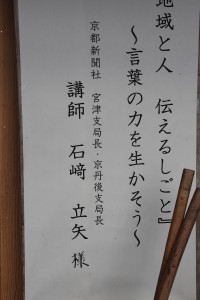 地域と人　伝えるしごと』
～言葉の力を生かそう～
京都新聞社　宮津支局長・京丹後支局長
講師　石﨑　立矢　様